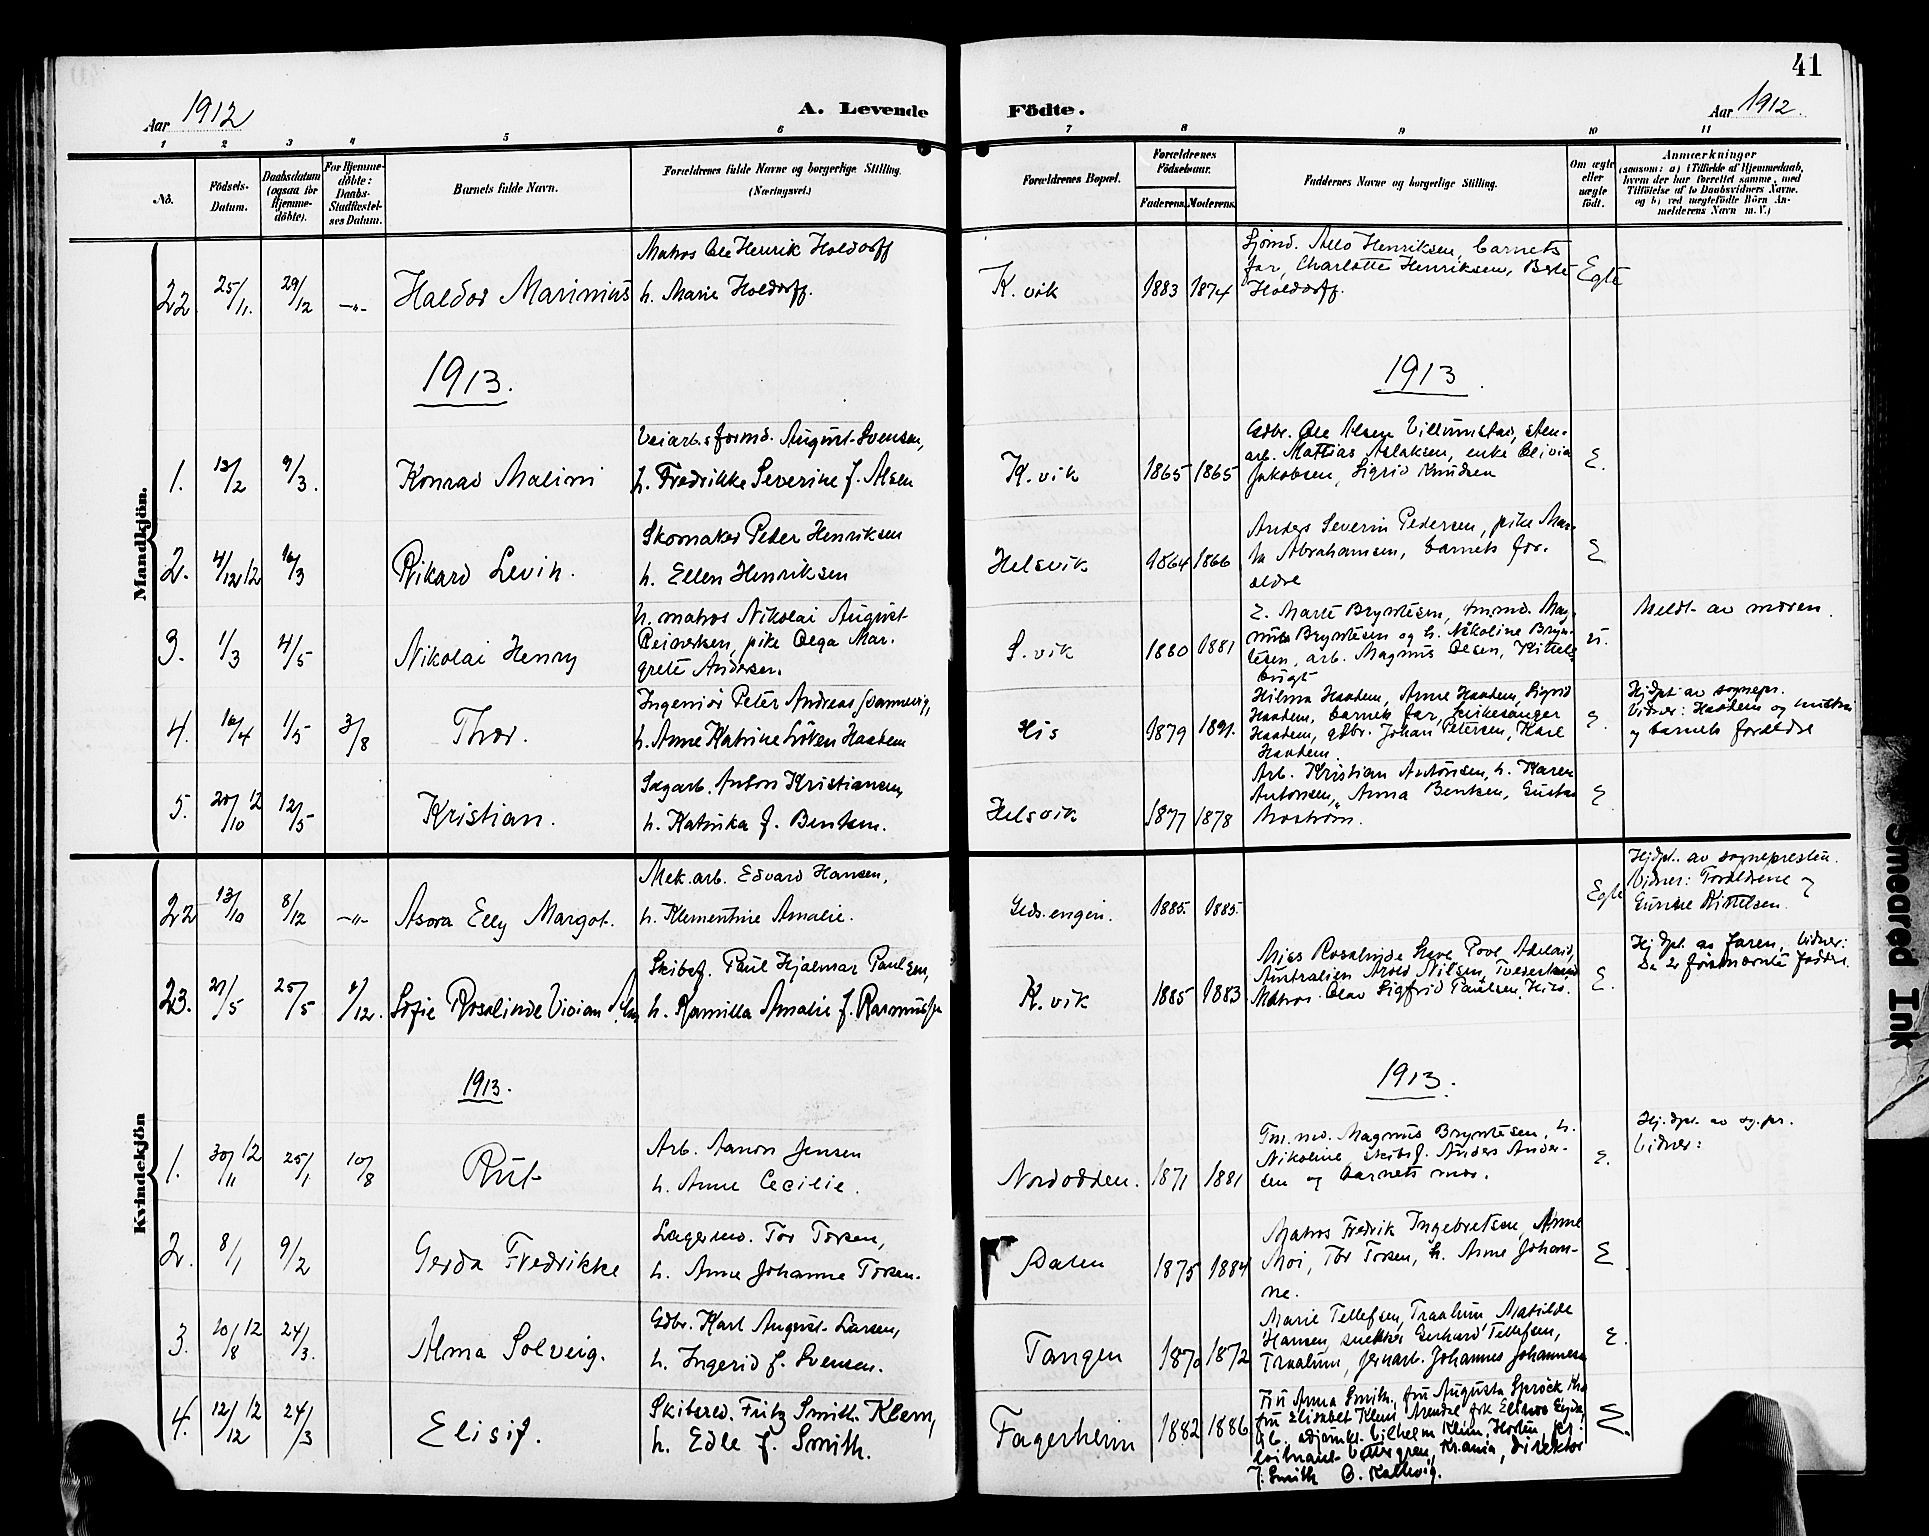 41
Aar 1912
A. Levende
Födte.
Aar 1912.
1 2 3 4 5 6 7 8 9 10 11
No.
Födsels-
Datum.
Daabsdatum
(ogsaa for
Hjemme-
döbte).
For Hjemme-
döbte:
Daabs-
Stadfæstel-
ses Datum.
Barnets fulde Navn.
Forældrenes fulde Navne og borgerlige Stilling.
(Næringsvei.)
Forældrenes Bopæl.
Forældrenes
Födselsaar.
Faderens. Moderens.
Faddernes Navne og borgerlige Stilling.
Om ægte
eller
uægte
födt.
Anmærkninger
(saasom: a) i Tilfælde af Hjemmedaab,
hvem der har forrettet samme, med
Tilföielse af to Daabsvidners Navne.
og b) ved uægtefödte Börn An-
melderens Navn m. V.)
Mandkjön.
22. 25/11. 29/12 -"- Haldor Marinius
Matros Ole Henrik Holdorff
h. Marie Holdorff.
K.vik 1883 1874
Sjömd. Henriksen, barnets
far, Charlotte Henriksen,
Holdorff.
Egte
1913.
1913.
1. 12/2 9/3. Konrad Malini
Veiarb.sformd. August Svensen,
h. Fredrikke Severine f. Alsen
K.vik 1865 1865
Gdbr. Ole Alsen
arb. Mattias Aslaksen, enke Olivia
Jakobsen, Sigrid Knudsen
E.
2. 4/12 12 16/3 Rikard Levin.
Skomaker Peder Henriksen
h. Ellen Henriksen
Helsvik 1864 1866
Anders Severin Pedersen, pike Mar-
ta Abrahamsen, barnets for-
ældre
E
3. 1/3 4/5 Nikolai Henry
U. matros Nikolai August
Reinertsen, pike Olga Mar-
grete Andersen.
S.vik 1880 1881
E. Marte Bryntesen, tmmd. Mag-
nus Bryntesen og h. Nikoline Bryn-
tesen, arb. Magnus Olsen, Kittels-
bugt
u.
Meldt av moren.
4. 16/4 1/5 3/8 Thor.
Ingeniör Peter Andreas Dannevig,
h. Anne Katrine Löken Haadem
His 1879 1891.
Hilma Haadem, Anne Haadem, Sigrid
Haadem, barnets far, kirkesanger
Haadem, gdbr. Johan Petersen, Kare
Haadem.
E.
Hjdpt. av sognepr.
Vidner: Haadem og hustru
og barnets forældre
5. 20/10 12 12/5 Kristian.
Sagarb. Anton Kristiansen,
h. Katinka f. Bentsen.
Helsvik 1877 1878
Arb. Kristian Antonsen, h. Karen
Antonsen, Anna Bentsen, Gustav
Moström.
E
Kvindekjön
22 13/10 8/12 -"- Asora Elly Margot.
Mek.arb. Edvard Hansen,
h. Klementine Amalie.
Geds.engen. 1885. 1885.
Egte
Hjdpt. av sognepresten.
Vidner: Forældrene og
Gunde Kittelsen.
23. 21/5 25/5 1/12. Sofie Rosalinde Vivian
Skibsf. Paul Hjalmar Paulsen,
h. Kamilla Amalie f. Rasmussen
K.vik 1885 1883
Miss Rosalinde Steve Pool, Adelaid,
Australien Arold Nilsen, Tvedestrand
Matros Olav Sigfrid Paulsen, His.
E.
Hjdpt. av faren, Vidner:
De 2 förstnævnte faddre.
1913.
1913.
1. 30/11 12 25/1 10/8 Rut
Arb. Aanon Jensen
h. Anne Cecilie.
Nordodden. 1871 1881
Tm.md. Magnus Bryntesen, h.
Nikoline, skibsf. Anders Ander-
sen og barnets mor.
E.
Hj.dpt. av sg.pr.
Vidner:
2. 8/1 9/2 Gerda Fredrikke
Lagermd. Tor Torsen,
h. Anne Johanne Torsen.
Dalen 1875 1884
Matros Fredrik Ingebretsen, Anne
Moi, Tor Torsen, h. Anne Johan-
ne.
E
3. 20/8 12 24/3. Alma Solveig.
Gdbr. Karl August Larsen,
h. Ingerid f. Svensen.
Tangen 1870 1872
Marie Tellefsen, Traalum Matilde
Hansen, snekker Gerhard Tellefsen,
Traalum, jernarb. Johannes Johannesen
E.
4. 12/12 12 24/3 Elisif.
Skibsred. Fritz Smith Klem,
h. Edle f. Smith.
Fagerheim 1882 1886
Fru Anna Smith, fru Augusta Spröck
fru Elisabet Klem, Arendal
adjunkt Vilhelm Klem, Horten,
Krania, direktör
J. Smith O. Kallevig.
E.
Smeared Ink